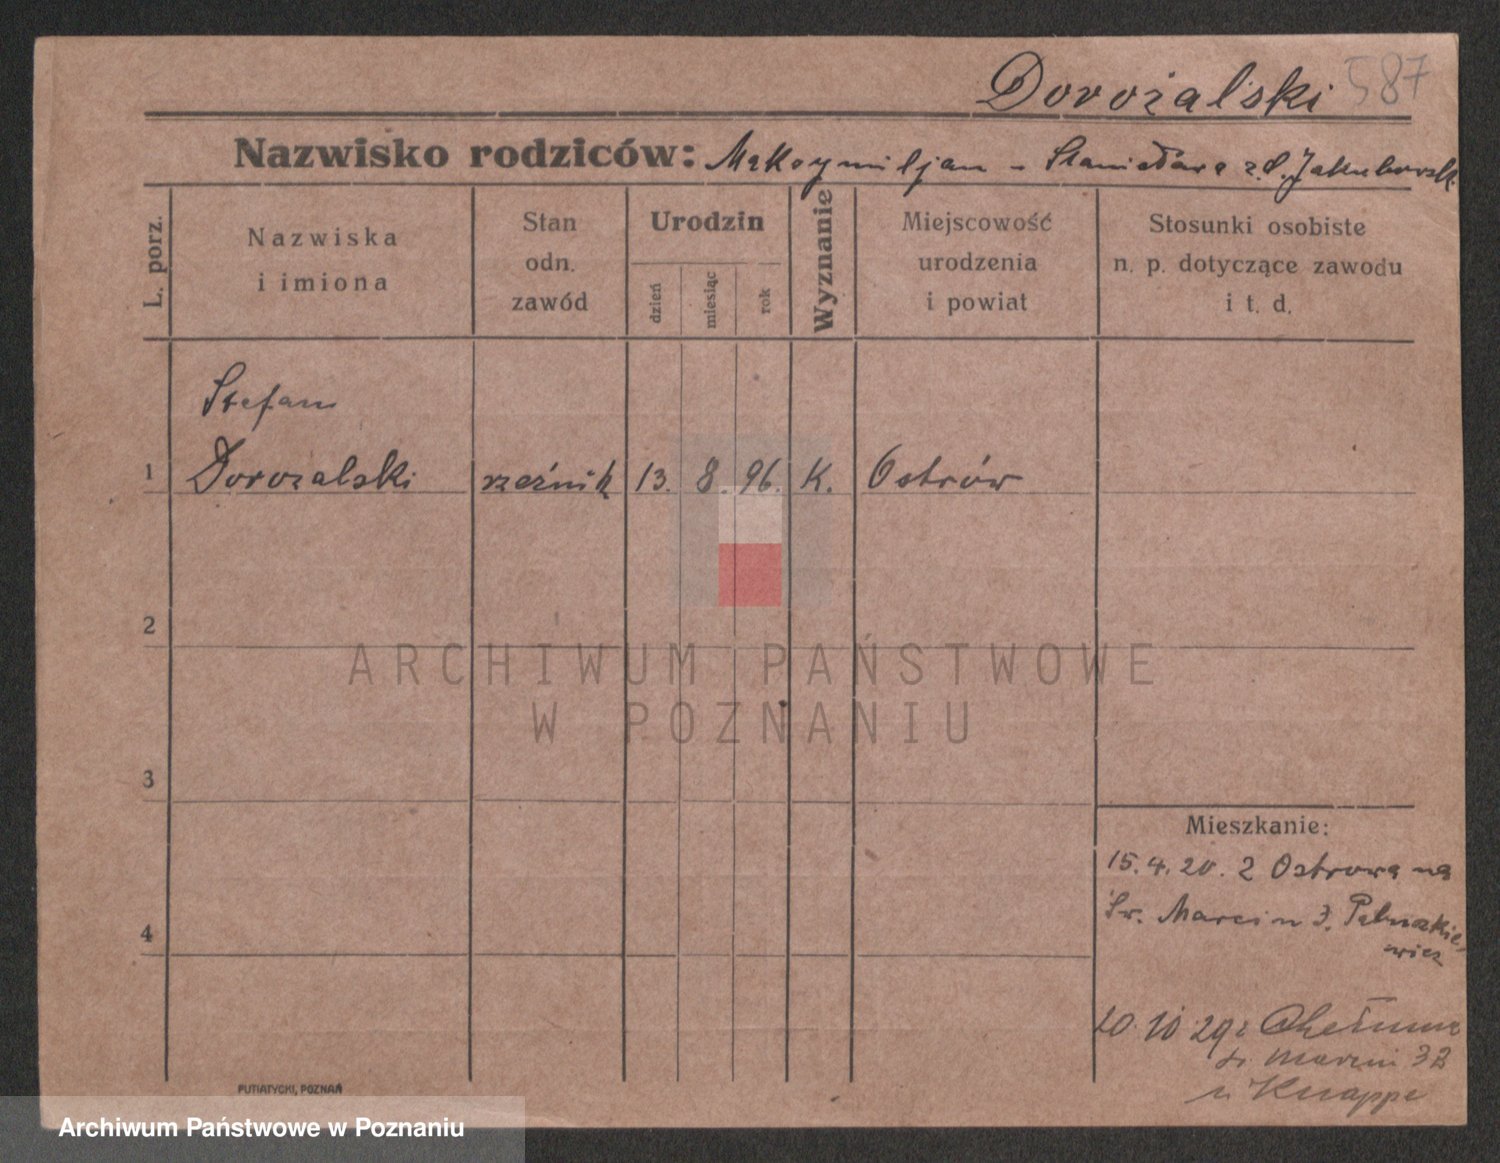 Dorożalski 587
Nazwisko rodziców: Maksymiljan - Stanisława z d. Jakubowsk
L. porz.
Nazwiska
i imiona
Stan
odn.
zawód
Urodzin
dzień
miesiąc
rok
Wyznanie
Miejscowość
urodzenia
i powiat
Stosunki osobiste
n. p. dotyczące zawodu
i t. d.
Stefan
1 Dorozalski rzeźnik 13. 8. 96. K. Ostrów
2
ARCHIWUM PAŃSTWOWE
W POZNANIU
3
Mieszkanie:
15.4.20. z Ostrowa na
Św. Marcin 3.
4
wicz
20 10 29 z
Marcin
u Knappe
PUTIATYCKI, POZNAŃ
Archiwum Państwowe w Poznaniu